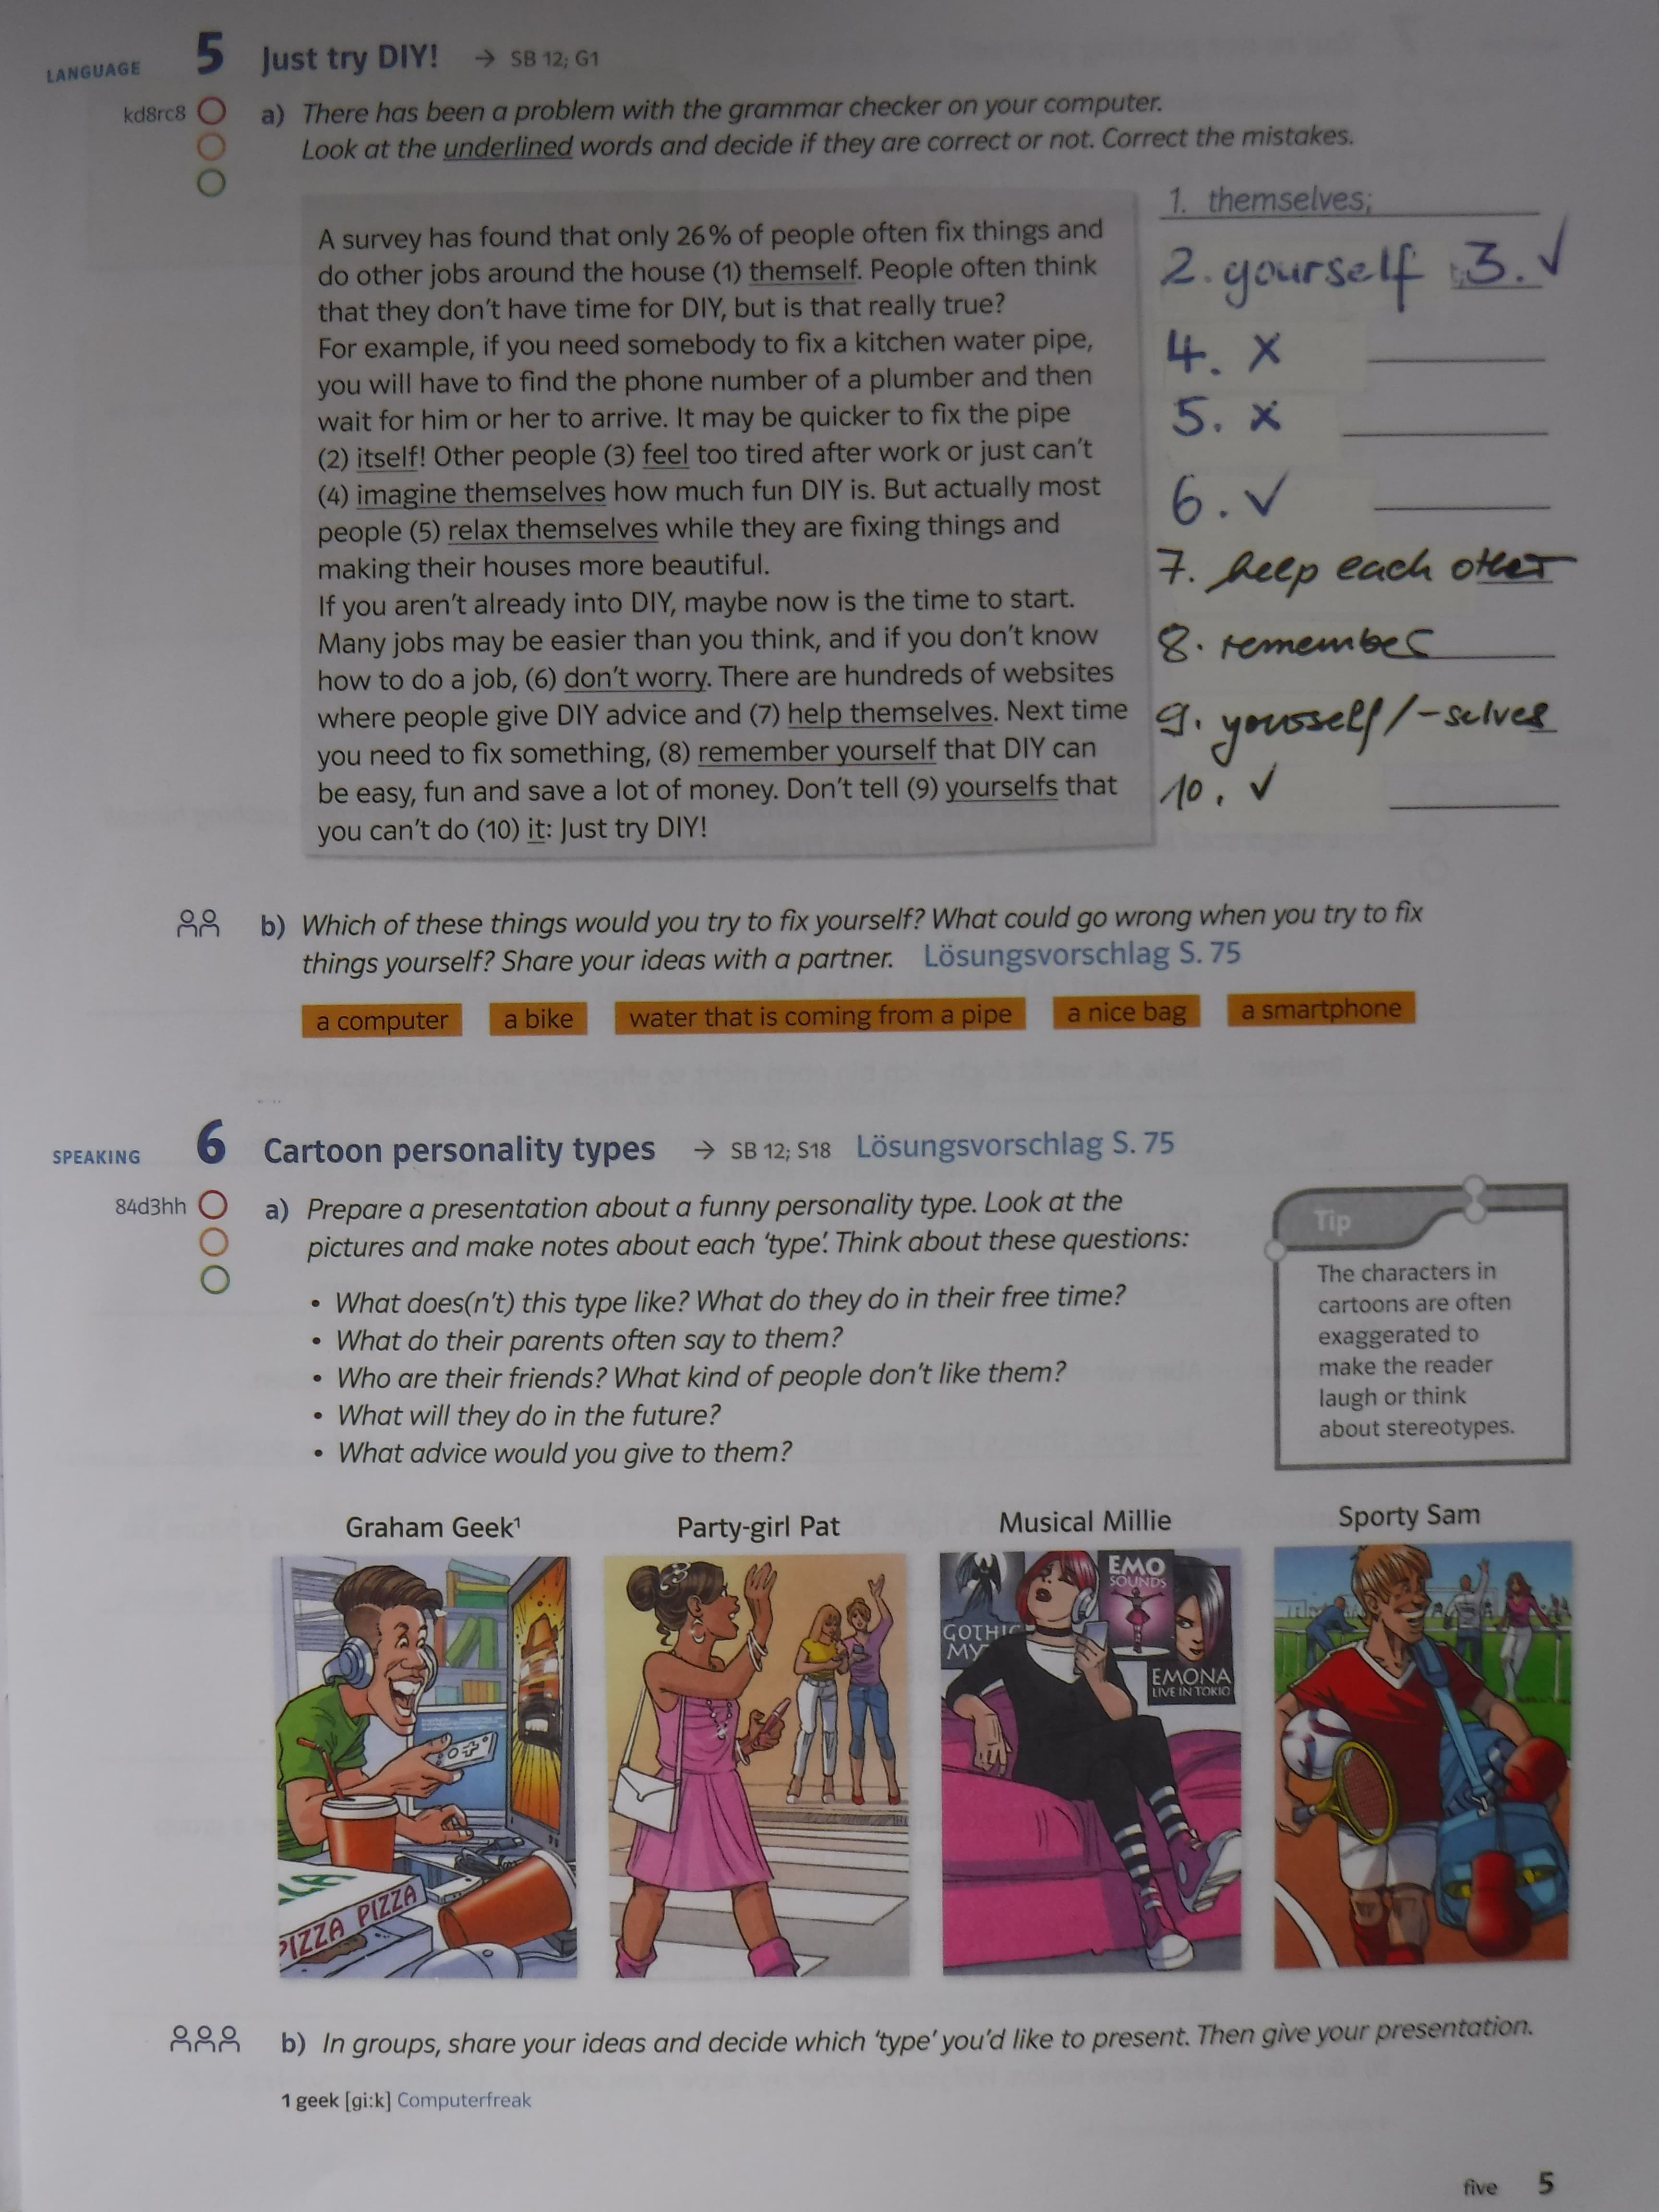 LANGUAGE 5 Just try DIY! → SB 12; G1
kd8rc8 a) There has been a problem with the grammar checker on your computer.
Look at the underlined words and decide if they are correct or not. Correct the mistakes.
A survey has found that only 26% of people often fix things and
do other jobs around the house (1) themself. People often think
that they don't have time for DIY, but is that really true?
For example, if you need somebody to fix a kitchen water pipe,
you will have to find the phone number of a plumber and then
wait for him or her to arrive. It may be quicker to fix the pipe
(2) itself! Other people (3) feel too tired after work or just can't
(4) imagine themselves how much fun DIY is. But actually most
people (5) relax themselves while they are fixing things and
making their houses more beautiful.
If you aren't already into DIY, maybe now is the time to start.
Many jobs may be easier than you think, and if you don't know
how to do a job, (6) don't worry. There are hundreds of websites
where people give DIY advice and (7) help themselves. Next time
you need to fix something, (8) remember yourself that DIY can
be easy, fun and save a lot of money. Don't tell (9) yourselfs that
you can't do (10) it: Just try DIY!
1. themselves;
2. yourself 3. ✓
4. x
5. x
6. ✓
7. help each other
8. remember
9. yourself/-selves
10. ✓
b) Which of these things would you try to fix yourself? What could go wrong when you try to fix
things yourself? Share your ideas with a partner. Lösungsvorschlag S. 75
a computer a bike water that is coming from a pipe a nice bag a smartphone
SPEAKING 6 Cartoon personality types → SB 12; S18 Lösungsvorschlag S. 75
84d3hh a) Prepare a presentation about a funny personality type. Look at the
pictures and make notes about each 'type'. Think about these questions:
• What does(n't) this type like? What do they do in their free time?
• What do their parents often say to them?
• Who are their friends? What kind of people don't like them?
• What will they do in the future?
• What advice would you give to them?
Tip
The characters in
cartoons are often
exaggerated to
make the reader
laugh or think
about stereotypes.
Graham Geek¹ Party-girl Pat Musical Millie Sporty Sam
PIZZA PIZZA
GOTHIC
EMO
SOUNDS
EMONA
LIVE IN TOKIO
b) In groups, share your ideas and decide which 'type' you'd like to present. Then give your presentation.
1 geek [giːk] Computerfreak
five 5